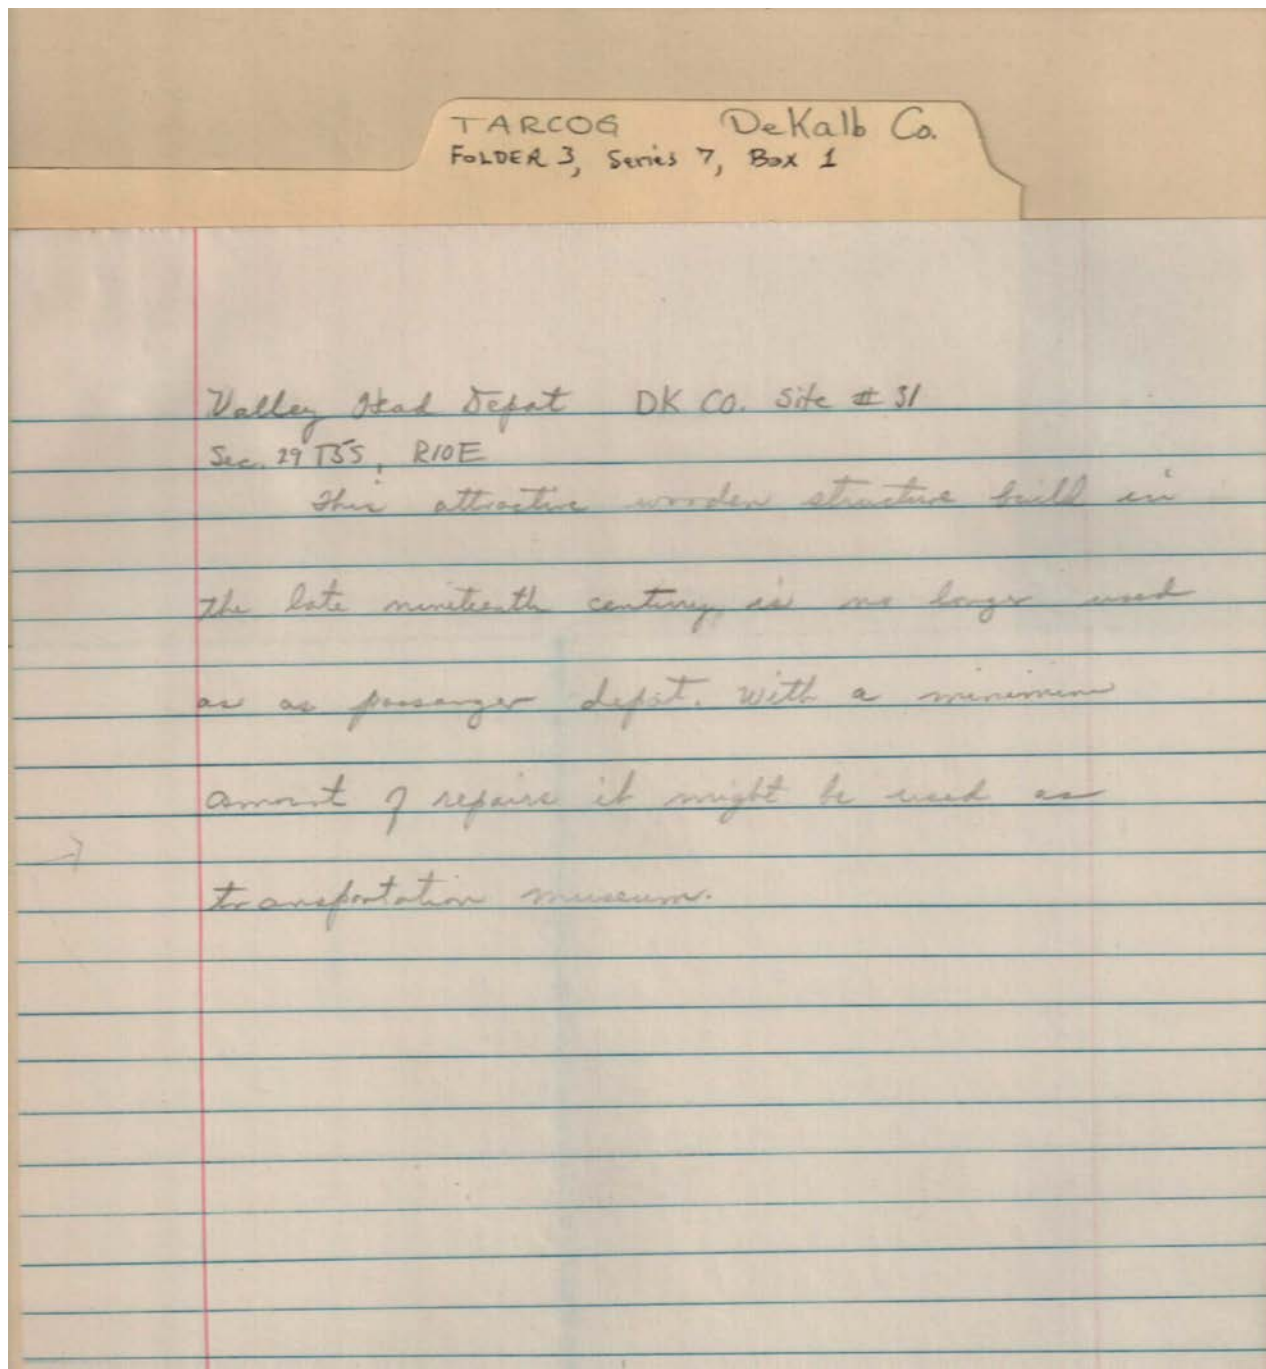 TARCOG DeKalb Co.
FOLDER 3, Series 7, Box 1
Valley Head Depot DK CO. Site # 31
Sec. 29 T5S, R10E
This attractive wooden structure build in
the late nineteenth century, is no longer used
as as passanger depot. With a minimim
amount of repairs it might be used as
transportation museum.